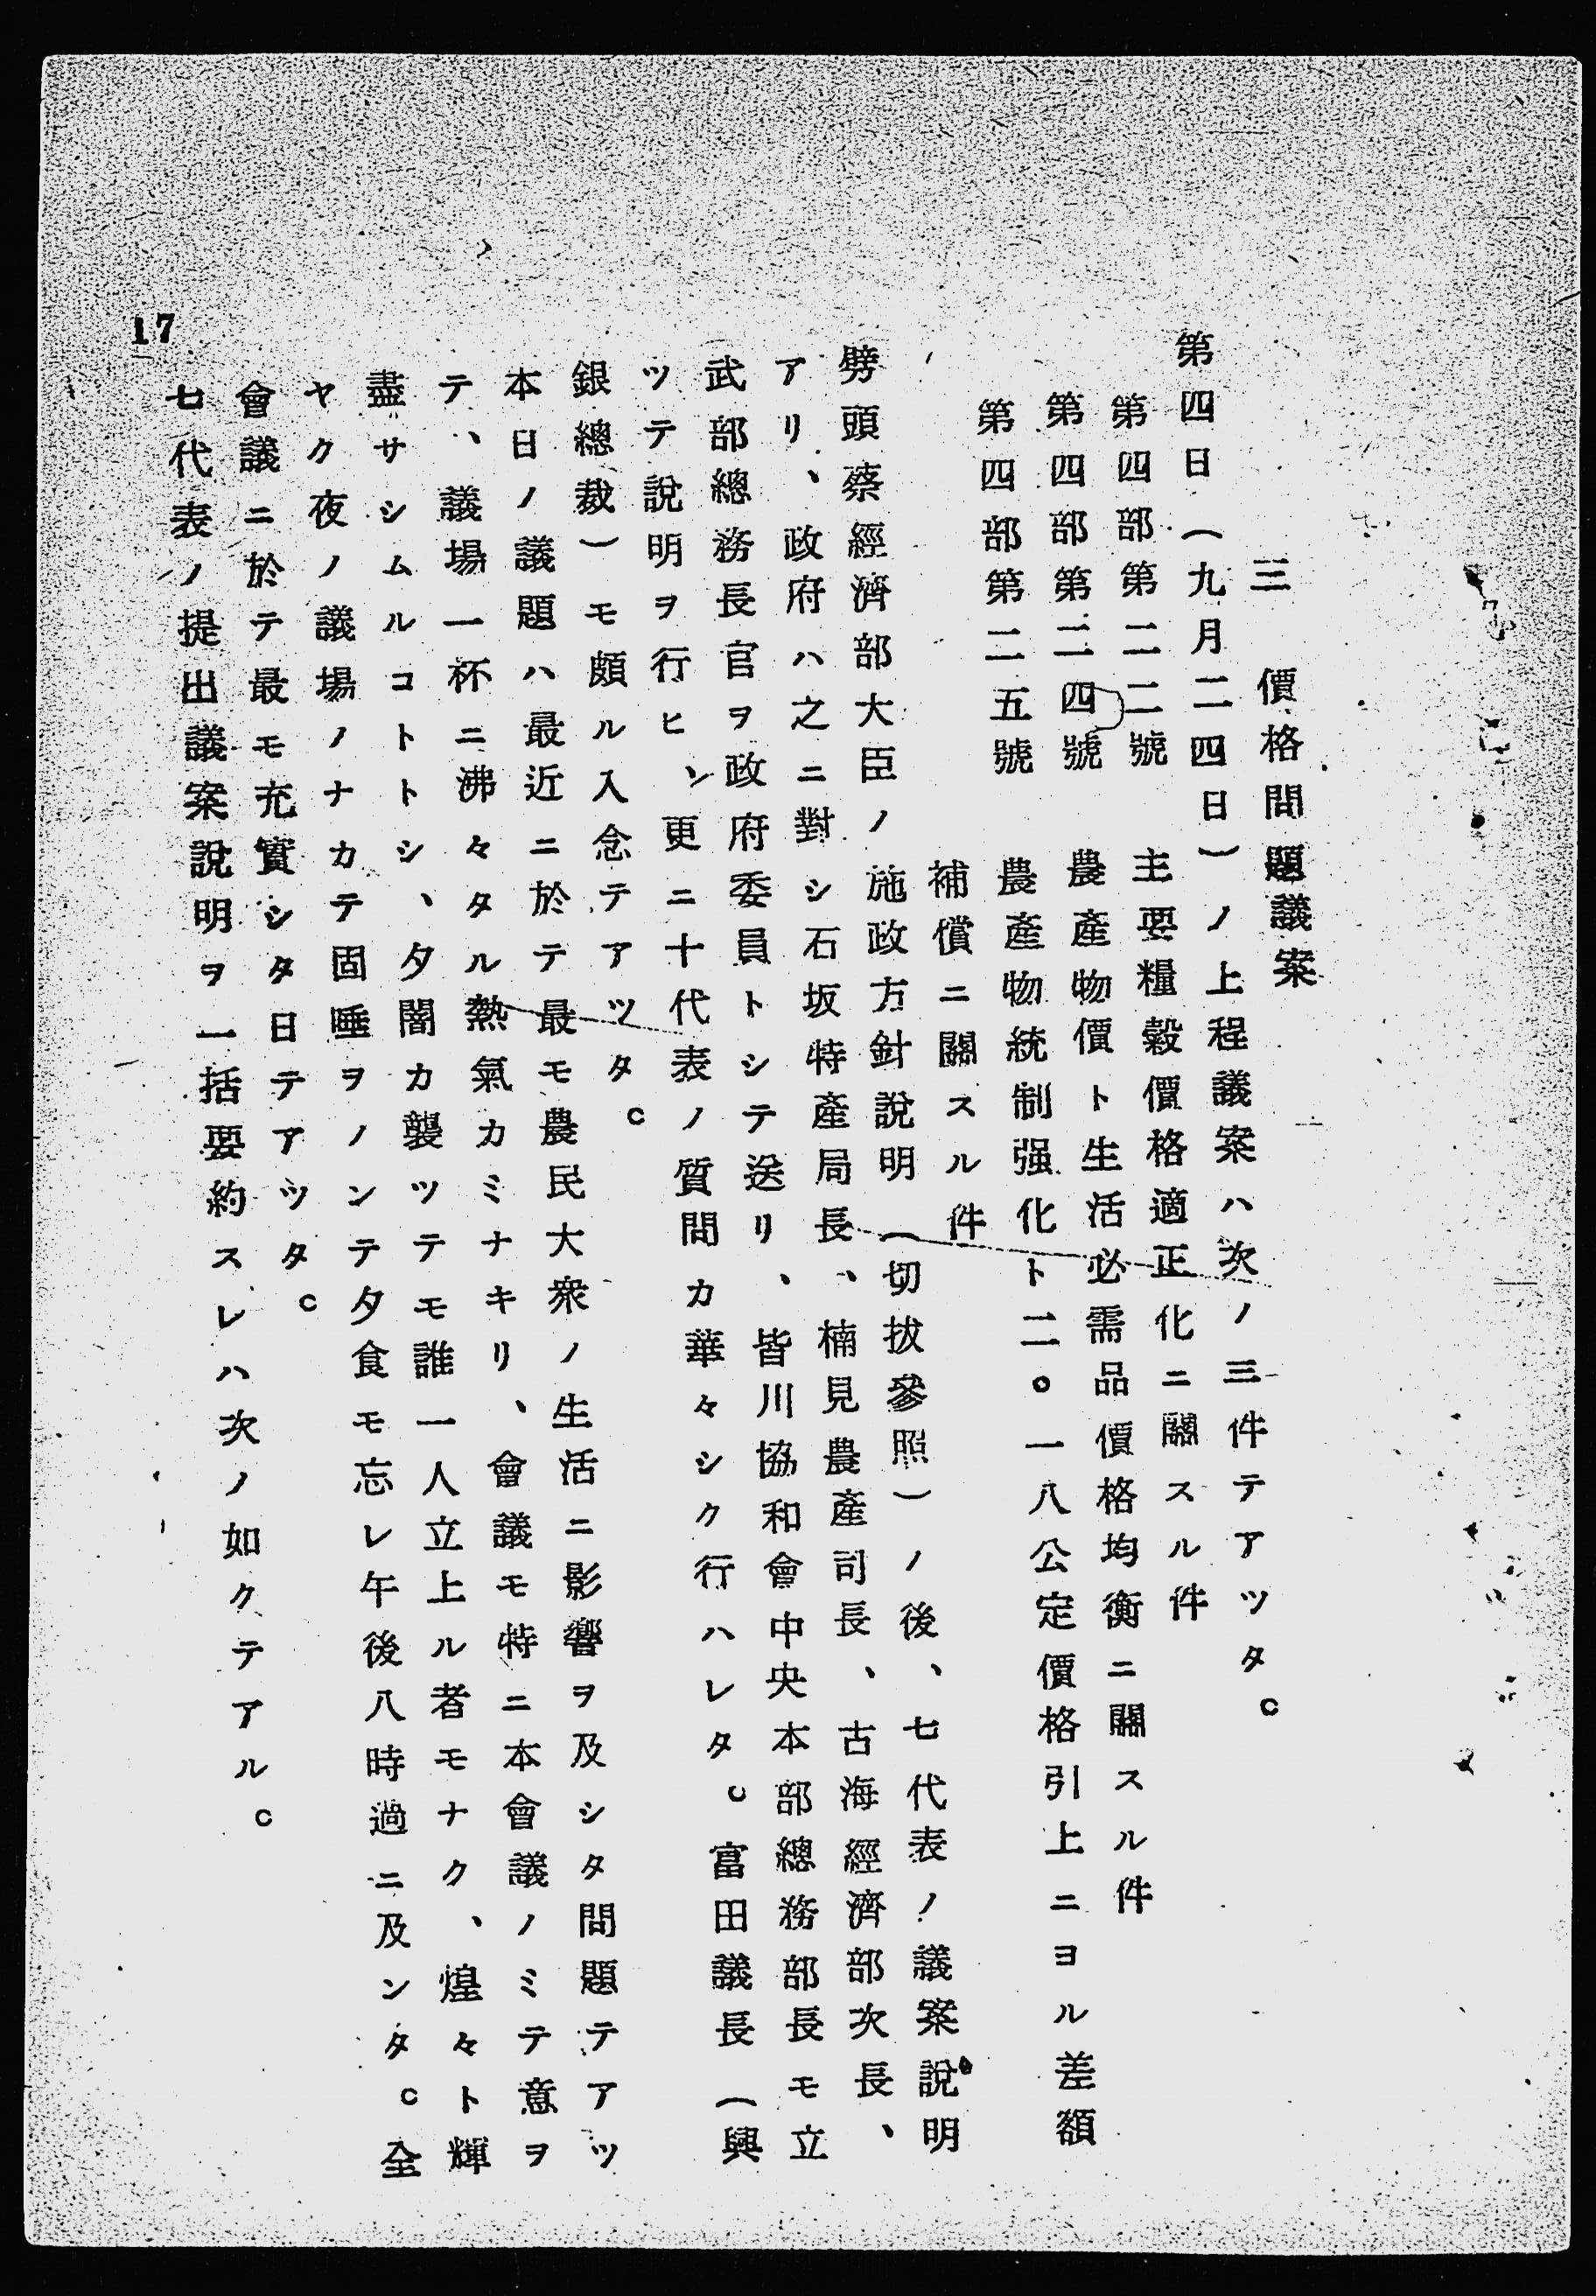 三　價格問題議案
第四日（九月二四日）ノ上程議案ハ次ノ三件テアツタ。
第四部第二二號　主要糧穀價格適正化ニ關スル件
第四部第二四號　農產物價ト生活必需品價格均衡ニ關スル件
第四部第二五號　農產物統制强化ト二。一八公定價格引上ニヨル差額
補償ニ關スル件
劈頭蔡經濟部大臣ノ施政方針說明（切拔參照）ノ後、七代表ノ議案說明
アリ、政府ハ之ニ對シ石坂特產局長、楠見農產司長、古海經濟部次長、
武部總務長官ヲ政府委員トシテ送リ、皆川協和會中央本部總務部長モ立
ツテ說明ヲ行ヒ、更ニ十代表ノ質問カ華々シク行ハレタ。富田議長（興
銀總裁）モ頗ル入念テアツタ。
本日ノ議題ハ最近ニ於テ最モ農民大衆ノ生活ニ影響ヲ及シタ問題テアツ
テ、議場一杯ニ沸々タル熱氣カミナキリ、會議モ特ニ本會議ノミテ意ヲ
盡サシムルコトトシ、夕闇カ襲ツテモ誰一人立上ル者モナク、煌々ト輝
ヤク夜ノ議場ノナカテ固唾ヲノンテ夕食モ忘レ午後八時過ニ及ンタ。全
會議ニ於テ最モ充實シタ日テアツタ。
七代表ノ提出議案說明ヲ一括要約スレハ次ノ如クテアル。
17